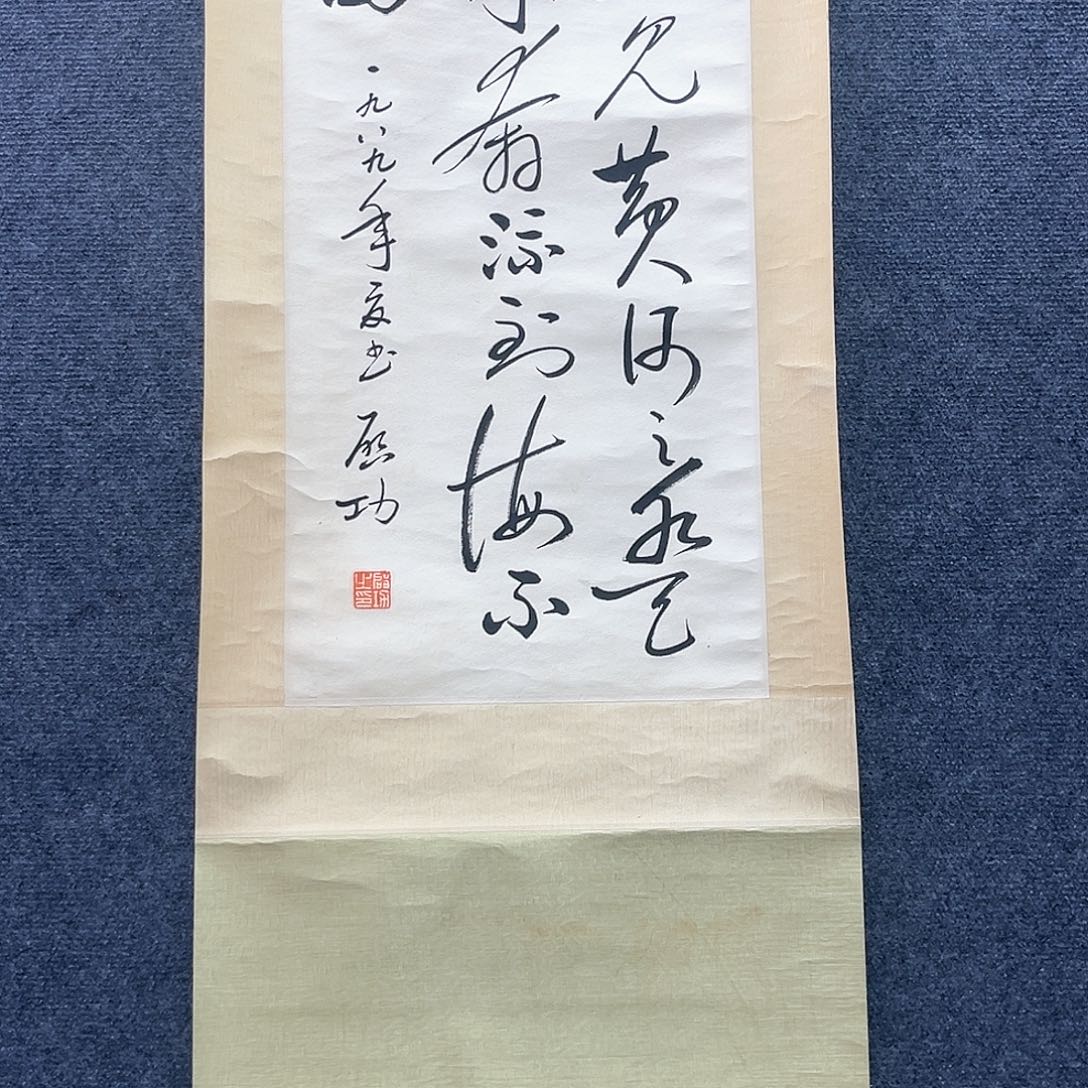 见黄河之水天
奔流到海不
一九八九年夏书 启功
啟功之印